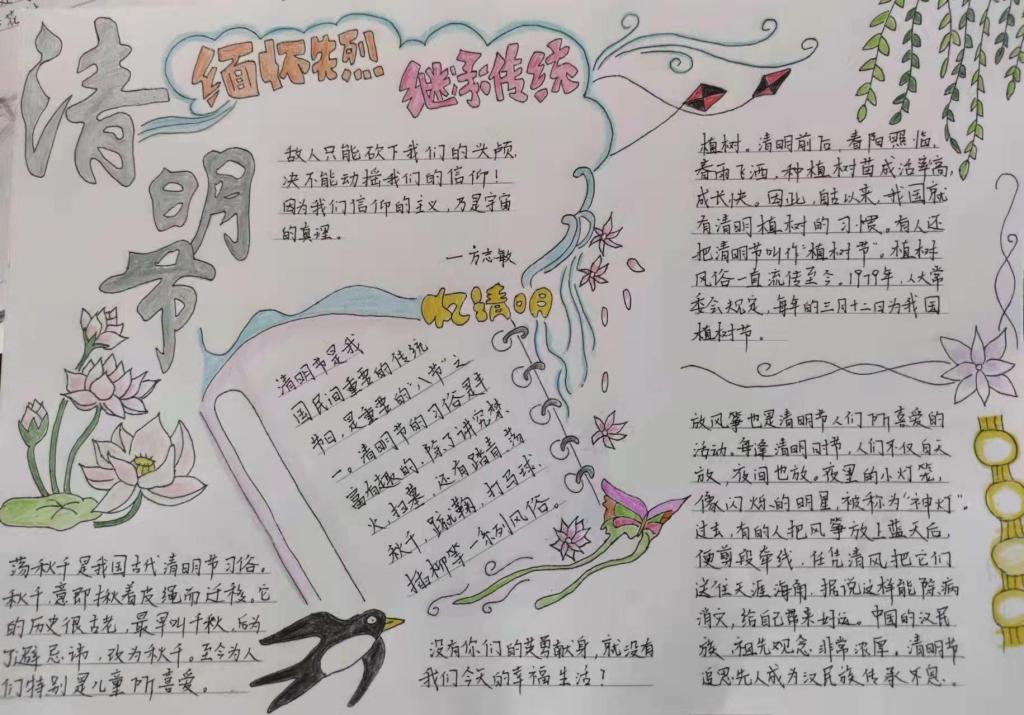 清明节
缅怀先烈
继承传统
敌人只能砍下我们的头颅,
决不能动摇我们的信仰!
因为我们信仰的主义,乃是宇宙
的真理。
—方志敏
忆清明
清明节是我
国民间重要的传统
节日,是重要的“八节”之
一。清明节的习俗是丰
富有趣的,除了讲究禁
火,扫墓,还有踏青,荡
秋千,蹴鞠,打马球,
插柳等一系列风俗。
植树。清明前后,春阳照临,
春雨飞洒,种植树苗成活率高,
成长快。因此,自古以来,我国就
有清明植树的习惯。有人还
把清明节叫作“植树节”。植树
风俗一直流传至今。1979年,人大常
委会规定,每年的三月十二日为我国
植树节。
放风筝也是清明节人们所喜爱的
活动。每逢清明时节,人们不仅白天
放,夜间也放。夜里的小灯笼,
像闪烁的明星,被称为“神灯”。
过去,有的人把风筝放上蓝天后,
便剪段牵线,任凭清风把它们
送往天涯海角,据说这样能除病
消灾,给自己带来好运。中国的汉民
族,祖先观念非常浓厚,清明节
追思先人成为汉民族传承不息。
荡秋千是我国古代清明节习俗。
秋千,意即揪着皮绳而迁移。它
的历史很古老,最早叫千秋,后为
了避忌讳,改为秋千。至今为人
们特别是儿童所喜爱。
没有你们的英勇献身,就没有
我们今天的幸福生活!